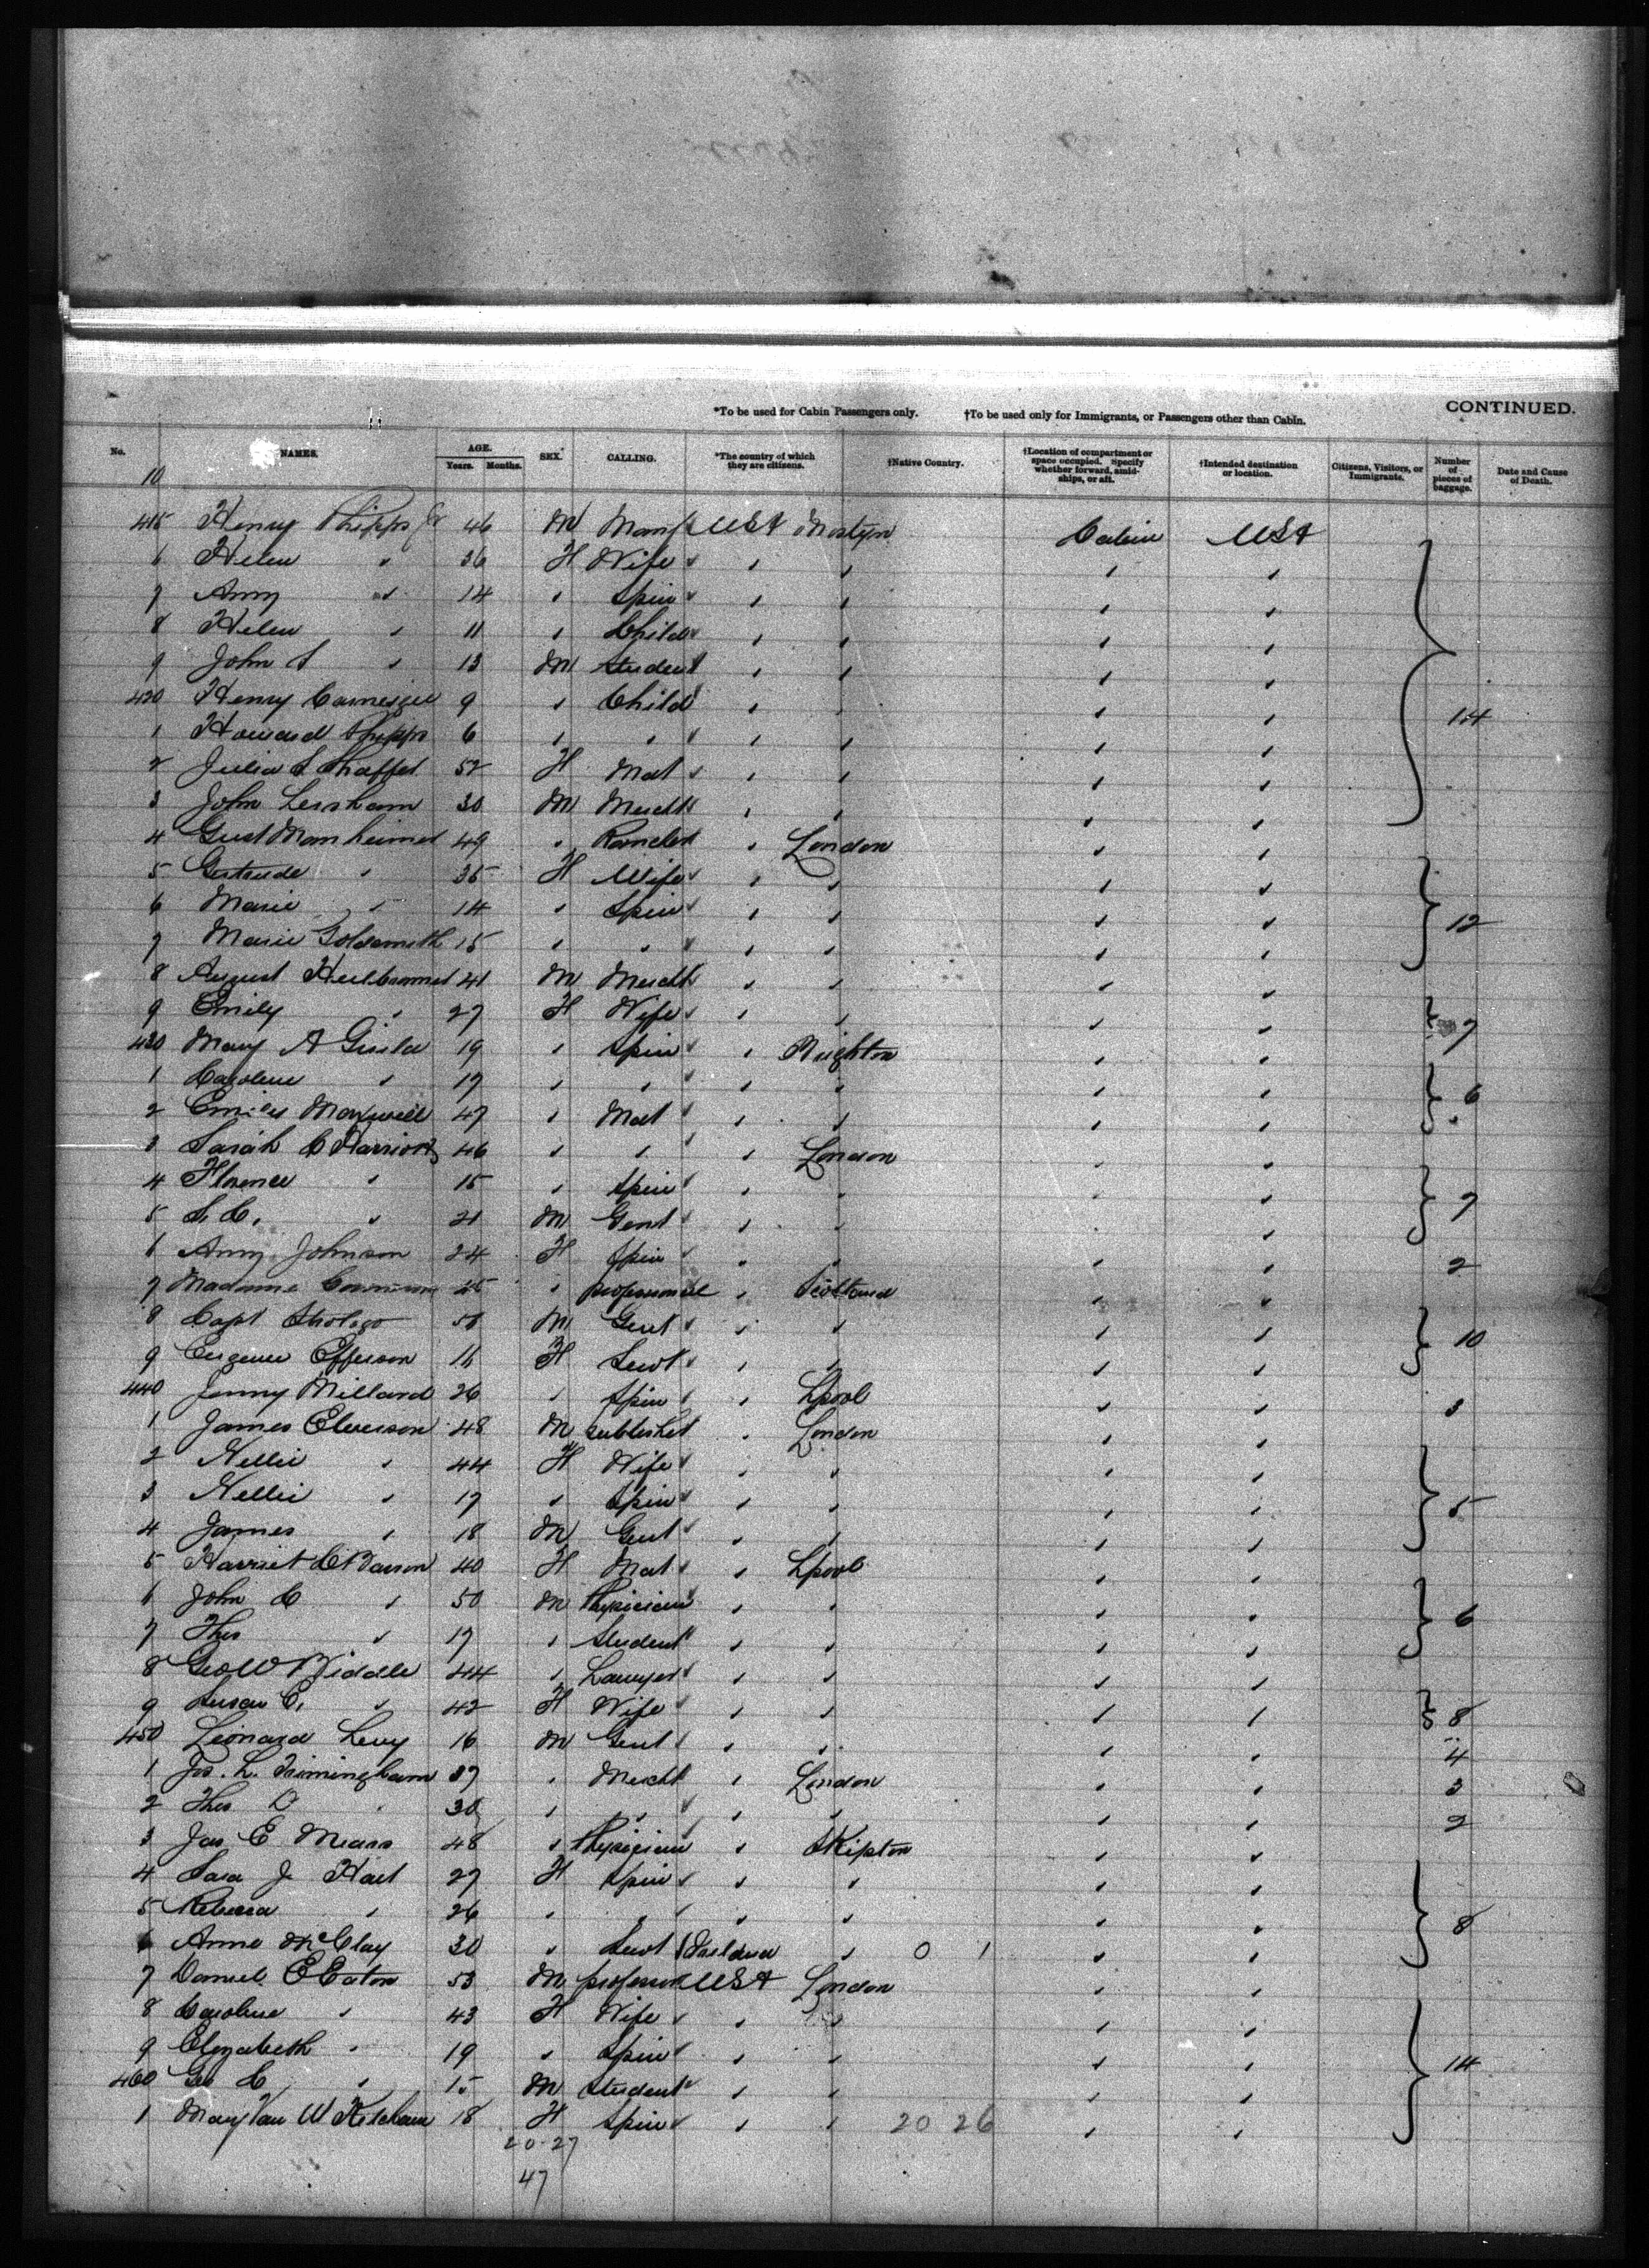 *To be used for Cabin Passengers only. †To be used only for Immigrants, or Passengers other than Cabin. CONTINUED.
No. NAMES. AGE. Years. Months. SEX. CALLING. *The country of which they are citizens. †Native Country. †Location of compartment or space occupied. Specify whether forward, amidships, or aft. †Intended destination or location. Citizens, Visitors, or Immigrants. Number of pieces of baggage. Date and Cause of Death.
10
415 Henry Phipps Jr 46 M Manf USA Mostyn Cabin USA
6 Helen " 36 F Wife " " " "
7 Amy " 14 " Spin " " " "
8 Helen " 11 " Child " " " "
9 John S " 13 M Student " " " "
420 Henry Carnegie 9 " Child " " " " 14
1 Howard Phipps 6 " " " " " "
2 Julia S Shaffer 52 F Mat " " " "
3 John 30 M Mercht " " " "
4 Gust Manheimer 49 " Rancher " London " "
5 Gertrude " 35 F Wife " " " "
6 Marie " 14 " Spin " " " " 12
7 Marie Goldsmith 15 " " " " " "
8 August 41 M Mercht " " " "
9 Emily " 27 F Wife " " " " 7
430 Mary A 19 " Spin " Brighton " "
1 Caroline " 17 " " " " " " 6
2 Emily Maxwell 47 " Mat " " " "
3 Sarah C Harriott 46 " " " London " "
4 Florence " 15 " Spin " " " " 7
5 S. C. " 21 M Gent " " " "
6 Amy Johnson 24 F Spin " " " " 2
7 Madame 45 " professional " Scotland " "
8 Capt 51 M Gent " " " " 10
9 Efferson 16 F Servt " " " "
440 Jenny Millard 26 " Spin " Lpool " " 3
1 James Elverson 48 M publisher " London " "
2 Nellie " 44 F Wife " " " "
3 Nellie " 17 " Spin " " " " 5
4 James " 18 M Gent " " " "
5 Harriet C 40 F Mat " Lpool " "
6 John C " 50 M Physician " " " " 6
7 Thos " 17 " Student " " " "
8 Geo W Biddle 44 " Lawyer " " " "
9 Susan C. " 42 F Wife " " " " 8
450 Leonard Levy 16 M Gent " " " " 4
1 Jos. L. Trimingham 37 " Mercht " London " " 3
2 Thos D " 30 " " " " " " 2
3 Jas E Mears 48 " Physician " Skipton " "
4 Sara J Hart 27 F Spin " " " "
5 Rebecca " 26 " " " " " " 8
6 Anne McClay 30 " Servt Ireland " 0 1 " "
7 Daniel C Eaton 53 M professor USA London " "
8 Caroline " 43 F Wife " " " "
9 Elizabeth " 19 " Spin " " " " 14
460 Geo C " 15 M Student " " " "
1 Mary Van W Ketcham 18 F Spin " " 20 26 " "
20-27
47